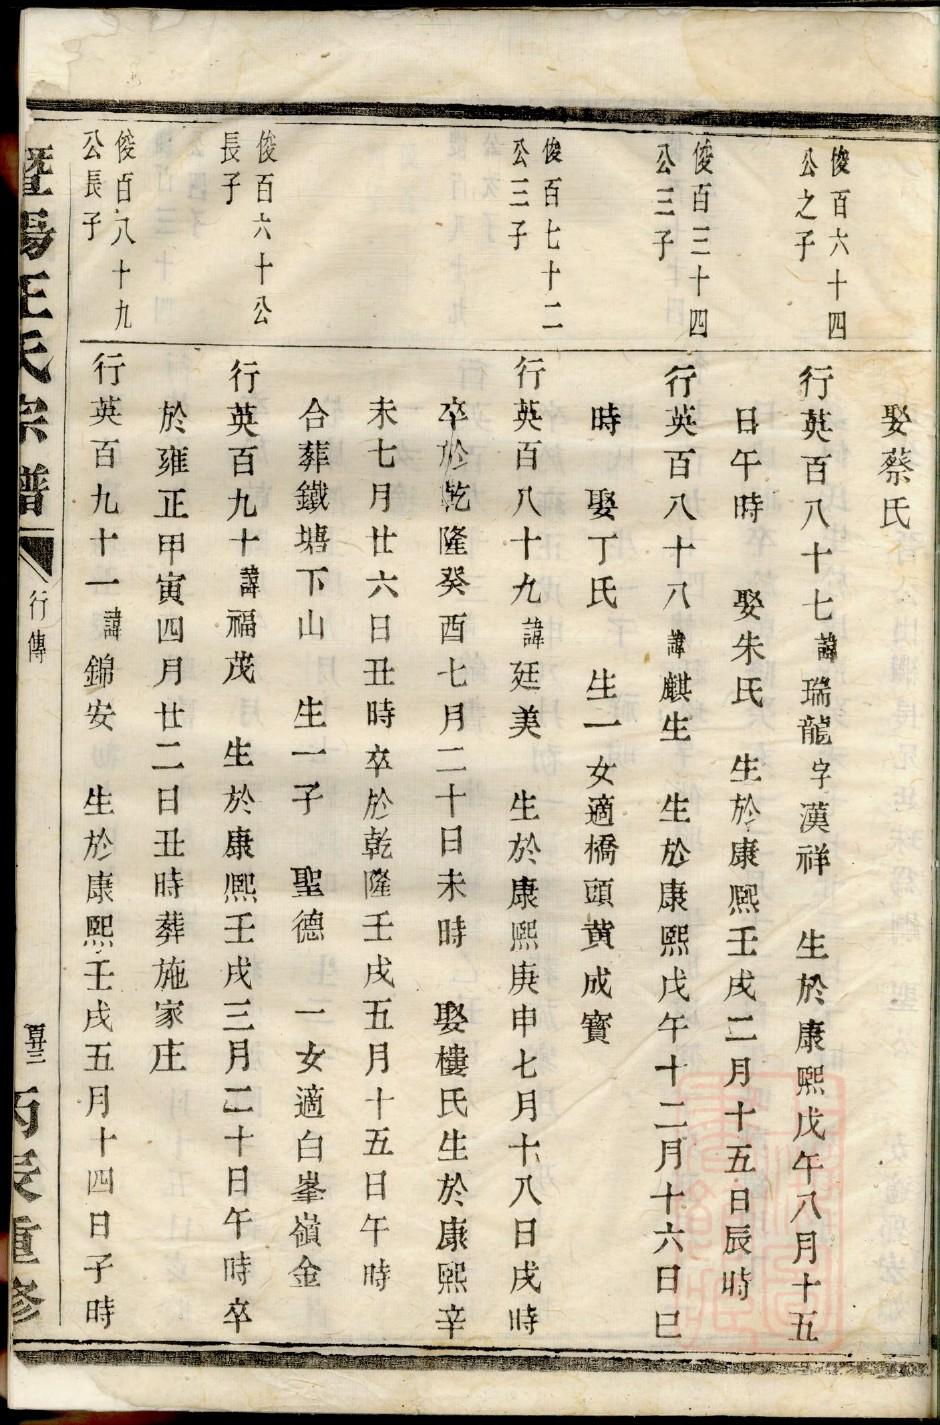 娶蔡氏
俊百六十四
公之子
行英百八十七諱瑞龍字漢祥 生於康熙戊午八月十五
日午時 娶朱氏 生於康熙壬戌二月十五日辰時
俊百三十四
公三子
行英百八十八諱麒生 生於康熙戊午十二月十六日巳
時 娶丁氏 生一女適橋頭黃成寳
俊百七十二
公三子
行英百八十九諱廷美 生於康熙庚申七月十八日戌時
卒於乾隆癸酉七月二十日未時 娶樓氏生於康熙辛
未七月廿六日丑時卒於乾隆壬戌五月十五日午時
合葬鐵塘下山 生一子 聖德 一女適白峯嶺金
俊百六十公
長子
行英百九十諱福茂 生於康熙壬戌三月二十日午時卒
於雍正甲寅四月廿二日丑時葬施家庄
俊百八十九
公長子
行英百九十一諱錦安 生於康熙壬戌五月十四日子時
暨陽王氏宗譜
行傳
丙辰重修